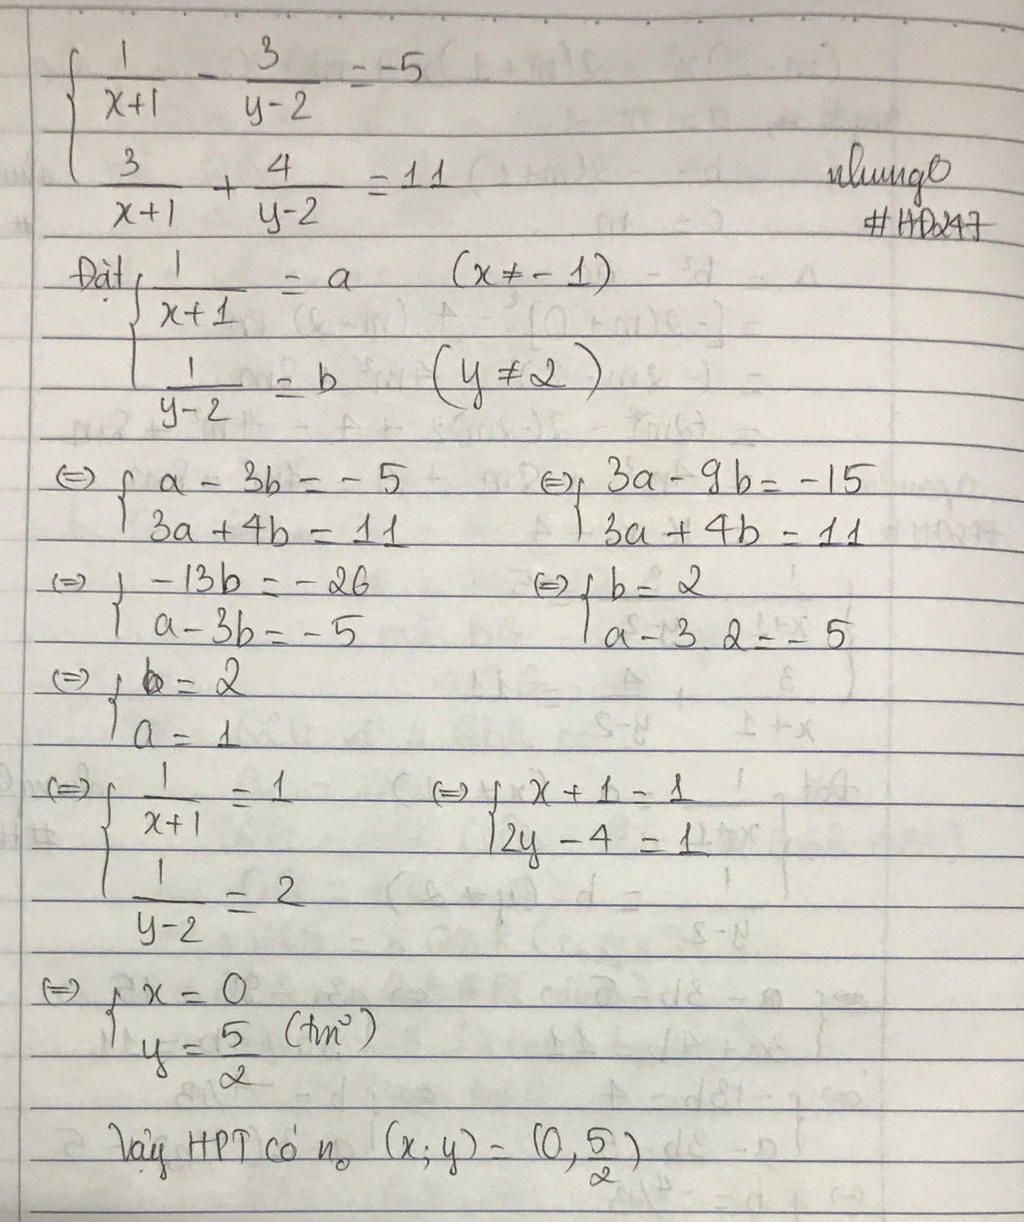 { 1/(x+1) - 3/(y-2) = -5
3/(x+1) + 4/(y-2) = 11
nhung0
#HD247
Đặt { 1/(x+1) = a (x ≠ -1)
1/(y-2) = b (y ≠ 2)
(=) { a - 3b = -5 (=) { 3a - 9b = -15
3a + 4b = 11 3a + 4b = 11
(=) { -13b = -26 (=) { b = 2
a - 3b = -5 a - 3.2 = -5
(=) { b = 2
a = 1
(=) { 1/(x+1) = 1 (=) { x + 1 = 1
1/(y-2) = 2 2y - 4 = 1
(=) { x = 0
y = 5/2 (tm)
Vậy HPT có no (x; y) = (0, 5/2)